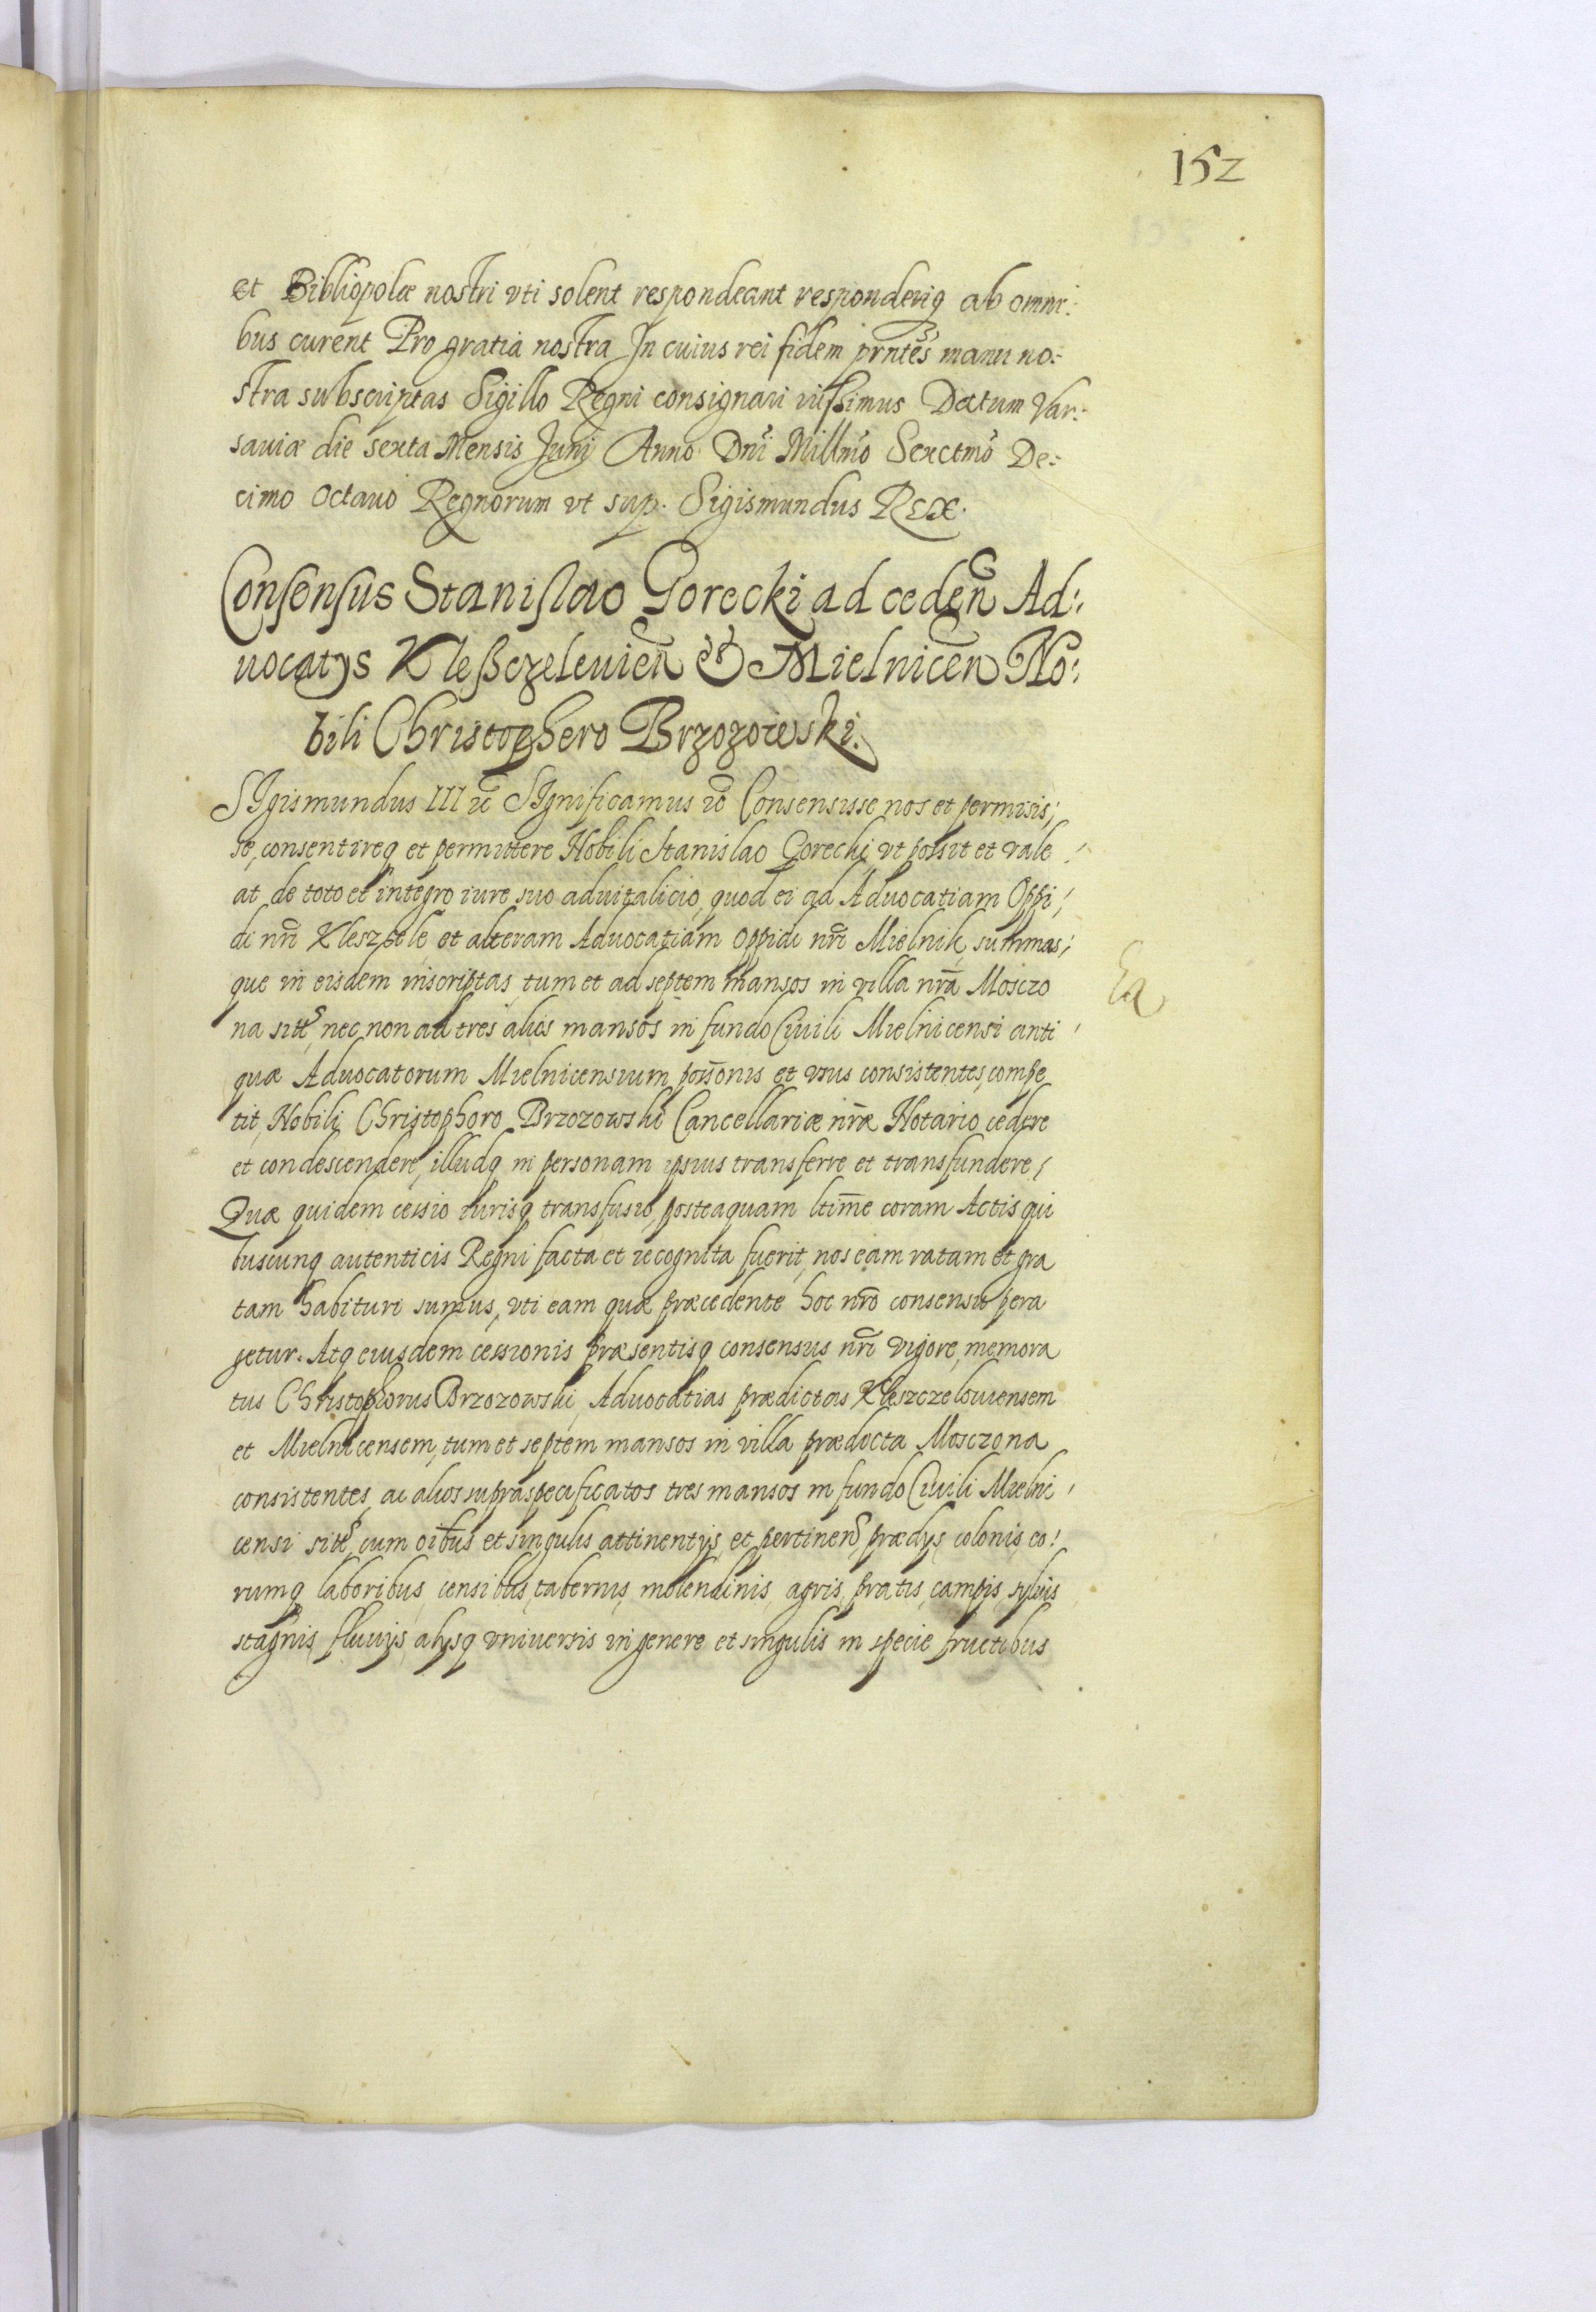 152
et Bibliopolæ nostri vti solent respondeant responderiq ab omni:
bus curent Pro gratia nostra In cuius rei fidem prntes manu no:
stra subscriptas Sigillo Regni consignari iussimus Datum Var:
sauiæ die sexta Mensis Junij Anno Dni Millmo Sexctmo De:
cimo octauo Regnorum vt sup. Sigismundus Rex.
Consensus Stanislao Gorecki ad ceden Ad:
uocatys Kleßczeleuien & Mielnicen No:
bili Christophero Brzozowski.
SIgismundus III rc SIgnificamus rc Consensisse nos et permisis;
se, consentireq et permittere Nobili Stanislao Gorecki, vt possit et vale
at de toto et integro iure suo aduitalicio, quod ei ad Aduocatiam Oppi,
di nri Kleszcele et alteram Aduocatiam oppidi nri Mielnik, summas,
que in eisdem inscriptas, tum et ad septem mansos in villa nra Mosczo
Ea
na sitt, nec non ad tres alios mansos in fundo Ciuili Mielnicensi anti
quæ Aduocatorum Mielnicensium possonis et vsus consistentes, compe
tit, Nobili Christophoro Brzozowski Cancellariæ nræ Notario cedere
et condescendere, illudq in personam ipsius transferre et transfundere,
Quæ quidem cessio iurisq transfusio, posteaquam ltime coram Actis qui
buscunq autenticis Regni facta et recognita fuerit, nos eam ratam et gra
tam habituri sumus, vti eam quæ præcedente hoc nro consensu pera
getur. Atq eiusdem cessionis præsentisq consensus nri vigore, memora
tus Christophorus Brzozowski, Aduocatias prædictas Kleszczelouiensem
et Mielnicensem, tum et septem mansos in villa prædicta Mosczona
consistentes, ac alios supraspecificatos tres mansos in fundo Ciuili Mielni
censi sitt, cum oibus et singulis attinentijs, et pertinen, prædijs, colonis, eo
rumq laboribus, censibus, tabernis, molendinis, agris, pratis, campis, syluis
stagnis, fluuijs, alysq vniuersis in genere et singulis in specie fructibus